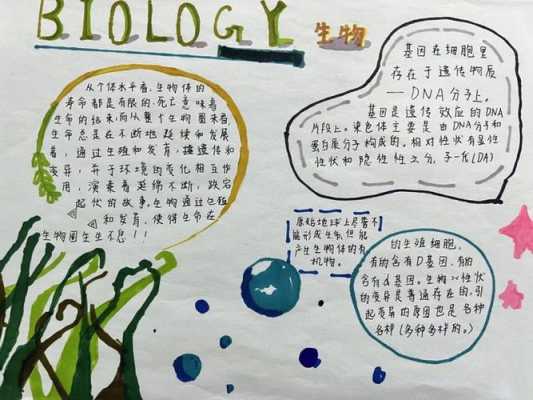 BIOLOGY 生物
从个体水平看,生物体的
寿命都是有限的,死亡意味着
生命的结束;而从整个生物圈来看
生命总是在不断地延续和发展
着,通过生殖和发育,遗传和
变异,并于环境的变化相互作
用,演奏着延绵不断,跌宕
起伏的故事,生物通过生殖
和发育,使得生命在
生物圈生生不息!!
基因在细胞里
存在于遗传物质
—DNA分子上。
基因是遗传效应的DNA
片段上。染色体主要是由DNA分子和
蛋白质分子构成的。相对性状有显性
性状和隐性性之分,子一代(DA)
原始地球上尽管不
能形成生命,但能
产生生物体的有
机物。
的生殖细胞。
有的含有D基因,有的
含有d基因。生物~性状
的变异是普遍存在的,引
起变异的原因也是各种
各样(多种多样的。)